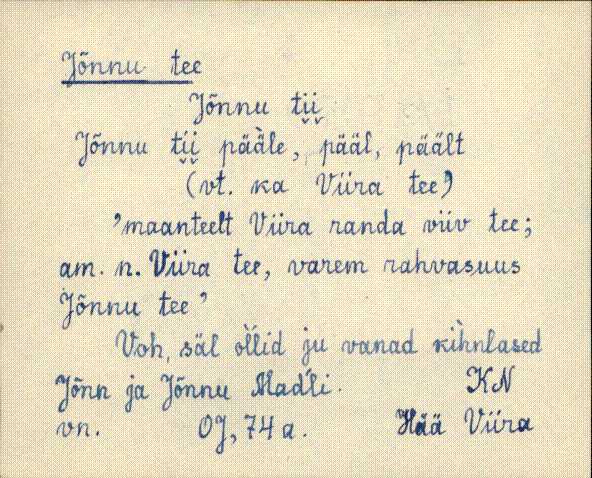 Jõnnu tee
Jõnnu ti̬i̬
Jõnnu ti̬i̬ pääle, pääl, päält
(vt. ka Viira tee)
'maanteelt Viira randa viiv tee;
am. n. Viira tee, varem rahvasuus
Jõnnu tee'
Voh, säl ollid ju vanad kihnlased
Jõnn ja Jõnnu Mad'li. KN
vn. OJ, 74 a. Hää Viira